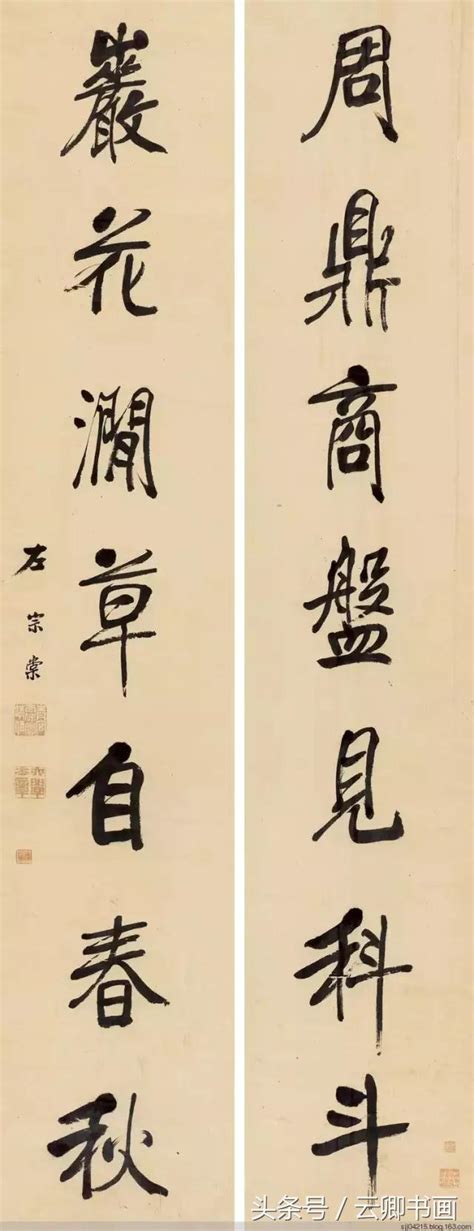 周鼎商盤見科斗
巖花澗草自春秋
左宗棠
头条号／云卿书画
sjj04215.blog.163.com